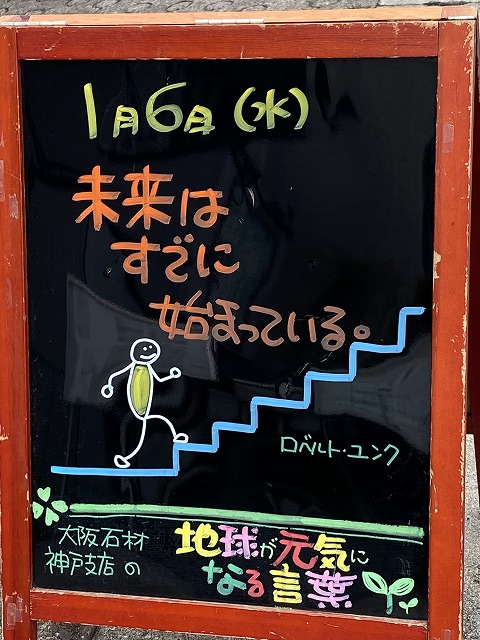 1月6日(水)
未来は
すでに
始まっている。
ロベルト・ユンク
大阪石材
神戸支店の
地球が元気に
なる言葉